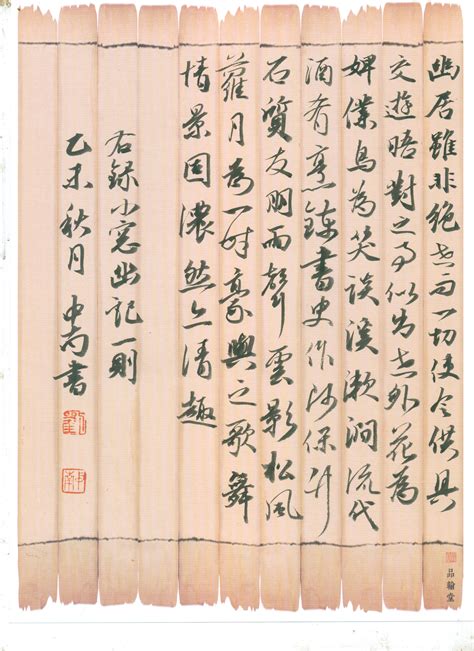 幽居雖非絕世而一切使令供具
交遊晤對之事似為世外花為
婢僕鳥為笑談溪漱澗流代
酒肴烹錬書史作師保竹
石質友朋雨聲雲影松風
蘿月為一時豪興之歌舞
情景固濃然亦清趣
右録小窓幽記一則
乙未秋月 書
品翰堂